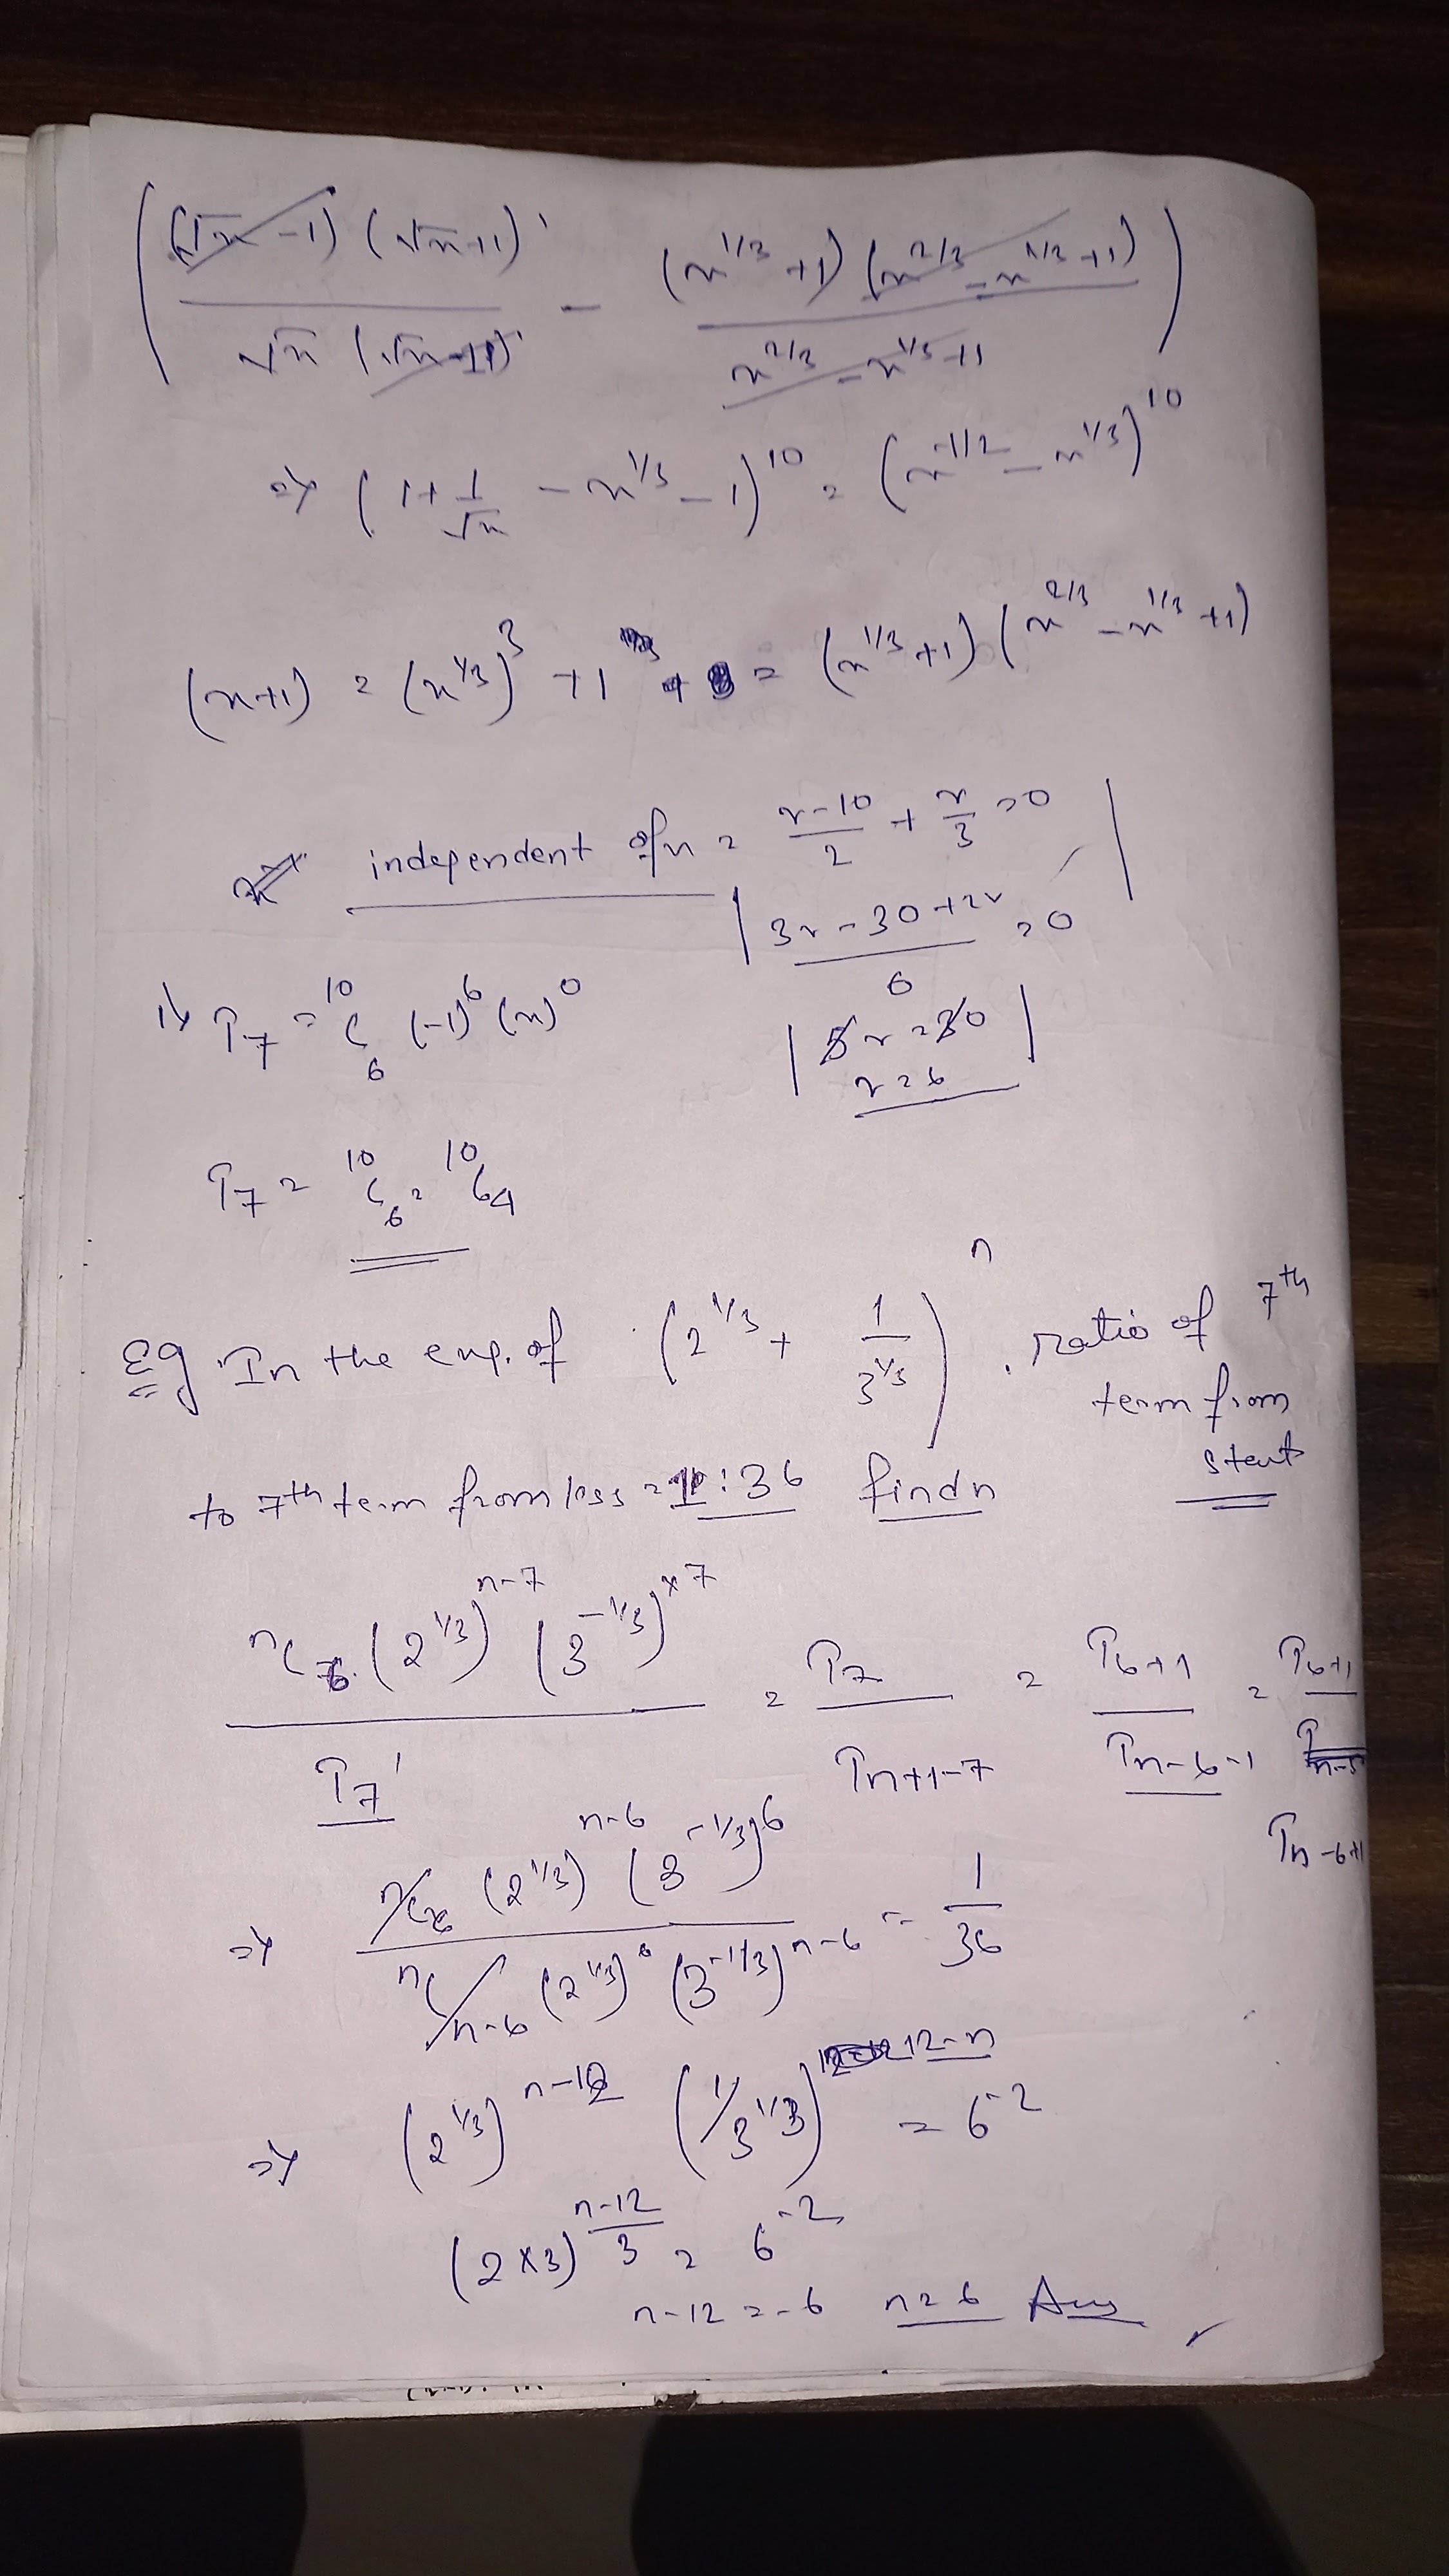 ( (√x - 1) (√x + 1) / √x (√x - 1) - (x^1/3 + 1) (x^2/3 - x^1/3 + 1) / x^2/3 - x^1/3 + 1 )
=> ( 1 + 1/√x - x^1/3 - 1 )^10 = ( x^-1/2 - x^1/3 )^10
(x+1) = (x^1/3)^3 + 1 = (x^1/3 + 1) ( x^2/3 - x^1/3 + 1)
independent of x = r-10/2 + r/3 = 0
3r - 30 + 2r / 6 = 0
=> T7 = 10C6 (-1)^6 (x)^0
5r = 30
r = 6
T7 = 10C6 = 10C4
Eg In the exp. of ( 2^1/3 + 1/3^1/3 )^n . ratio of 7th
term from
start
to 7th term from = 1 : 36 find n
nC6 (2^1/3)^n-7 (3^-1/3)^7 / T7' = T7 / Tn+1-7 = T6+1 / Tn-6-1 = T6+1 / Tn-5
Tn-6+1
=> nC6 (2^1/3)^n-6 (3^-1/3)^6 / nCn-6 (2^1/3)^6 (3^-1/3)^n-6 = 1/36
=> (2^1/3)^n-12 (1/3^1/3)^12-n = 6^-2
(2×3)^n-12/3 = 6^-2
n-12 = -6 n = 6 Ans